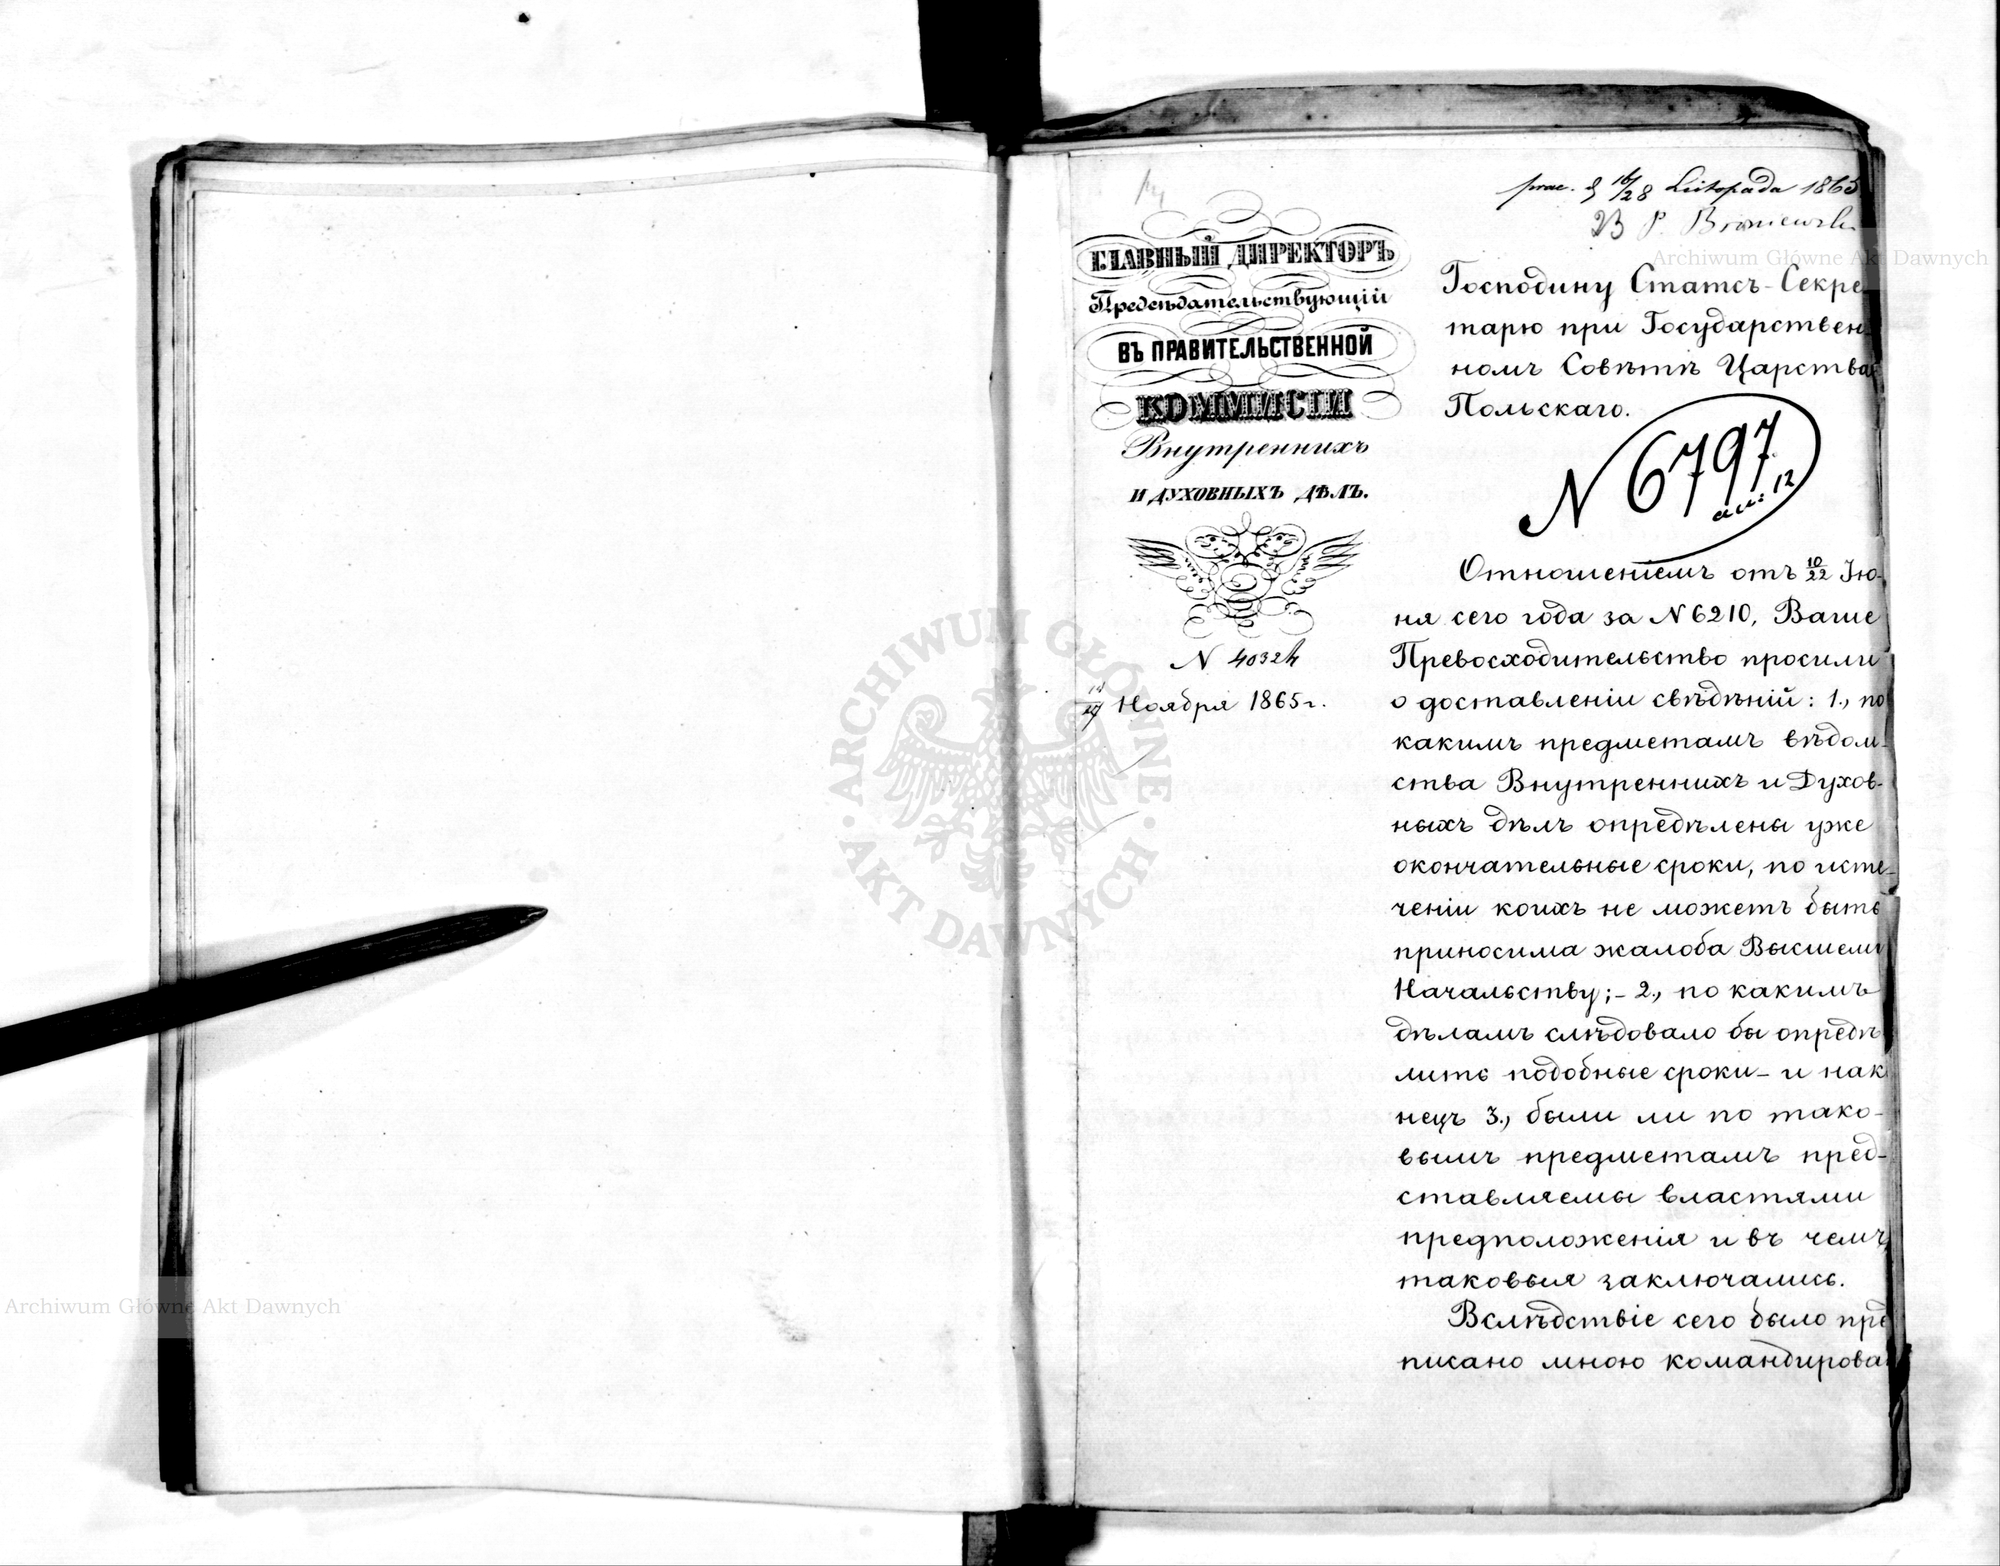 praes. d 16/28 Listopada 1865
ГЛАВНЫЙ ДИРЕКТОРЪ
Предсѣдательствующій
ВЪ ПРАВИТЕЛЬСТВЕННОЙ
КОММИСІИ
Внутреннихъ
И ДУХОВНЫХЪ ДѢЛЪ.
N 40324
Ноября 1865 г.
Господину Статсъ-Секре
тарю при Государствен-
номъ Совѣтѣ Царства
Польскаго.
N 6797
Отношеніемъ отъ 10/22 Ію-
ня сего года за N 6210, Ваше
Превосходительство просили
о доставленіи свѣдѣній: 1., по
какимъ предметамъ вѣдом-
ства Внутреннихъ и Духов-
ныхъ дѣлъ опредѣлены уже
окончательные сроки, по исте-
ченіи коихъ не можетъ быть
приносима жалоба Высшему
Начальству; - 2., по какимъ
дѣламъ слѣдовало бы опредѣ
лить подобные сроки - и нако
нецъ 3., были ли по тако-
вымъ предметамъ пред-
ставляемы властями
предположенія и въ чемъ
таковыя заключались.
Вслѣдствіе сего было пред
писано мною командирова
ARCHIWUM GŁÓWNE AKT DAWNYCH
Archiwum Główne Akt Dawnych
Archiwum Główne Akt Dawnych